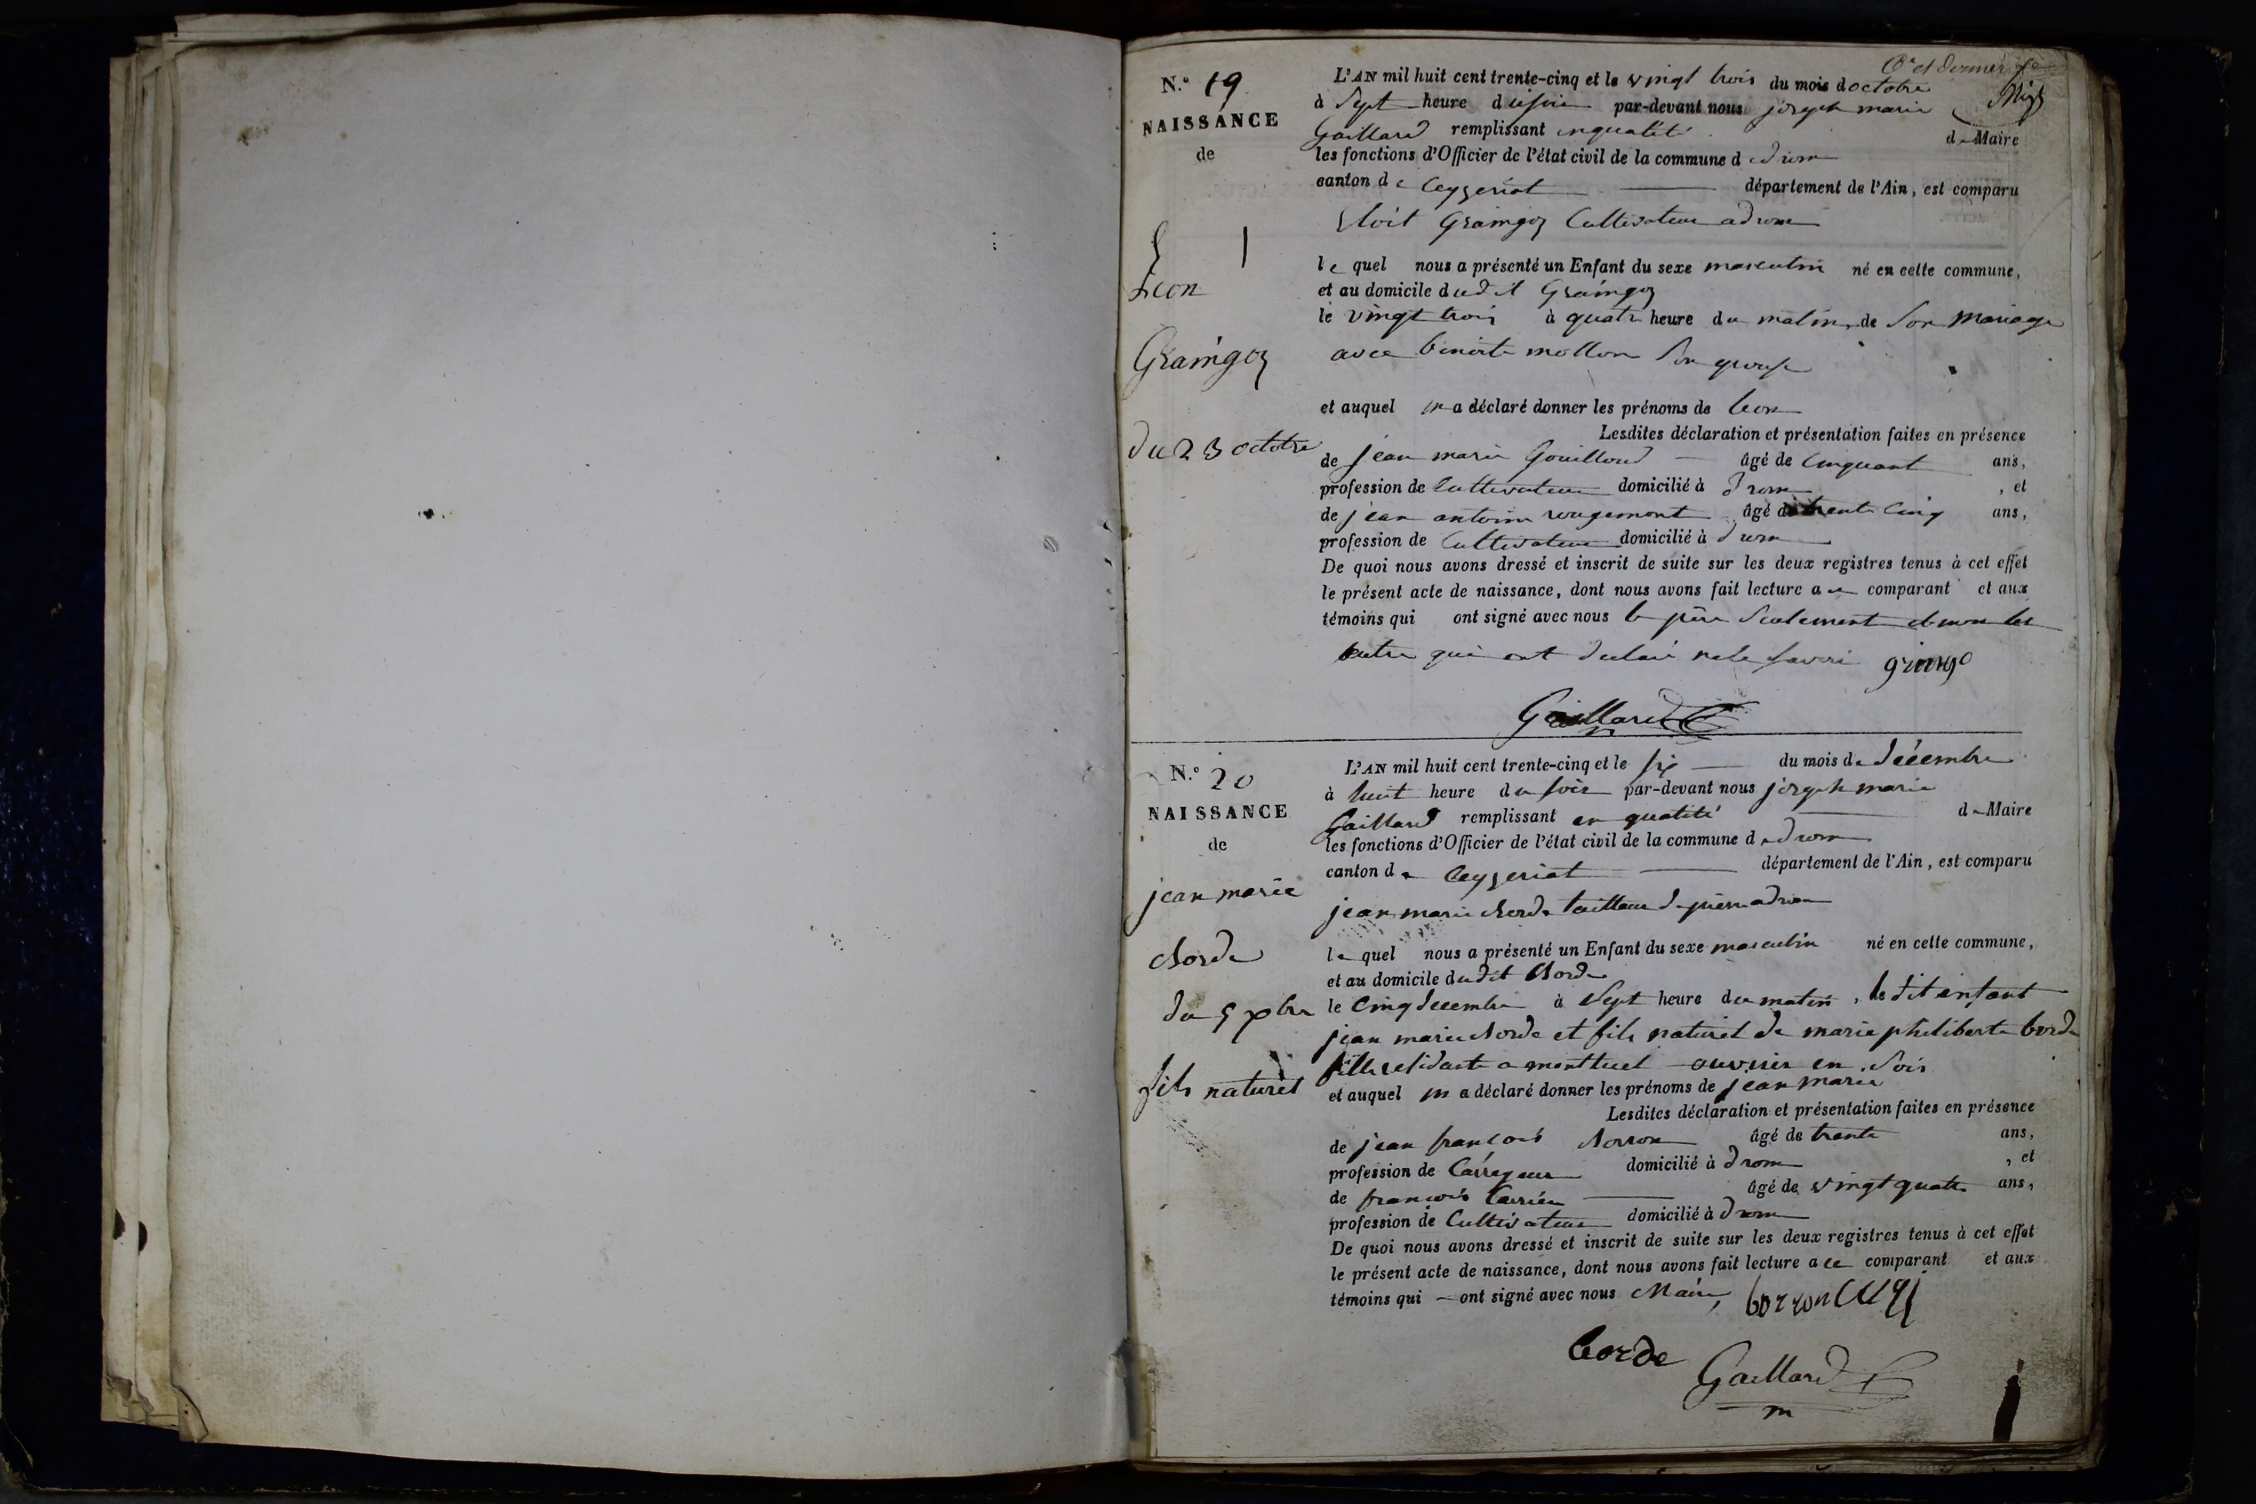 et dernier
N.º 19
NAISSANCE
de
Léon
Graingoz
du 23 octobre
L'AN mil huit cent trente-cinq et le vingt trois du mois d octobre
à sept heure du soir par-devant nous joseph marie
Gaillard remplissant en qualité de Maire
les fonctions d'Officier de l'état civil de la commune de drom
canton de Ceyzeriat département de l'Ain, est comparu
Graingoz Cultivateur a drom
le quel nous a présenté un Enfant du sexe masculin né en cette commune,
et au domicile dudit Graingoz
le vingt trois à quatre heure du matin, de son mariage
avec benoite mollon son epouse
et auquel il a déclaré donner les prénoms de leon
Lesdites déclaration et présentation faites en présence
de jean marie Gouilloud âgé de cinquant ans,
profession de Cultivateur domicilié à drom , et
de jean antoine rougemont âgé de trente cinq ans,
profession de Cultivateur domicilié à drom
De quoi nous avons dressé et inscrit de suite sur les deux registres tenus à cet effet
le présent acte de naissance, dont nous avons fait lecture au comparant et aux
témoins qui ont signé avec nous le père seulement et non les
autre qui ont declaré ne le savoir
Gaillard
N.º 20
NAISSANCE
de
jean marie
borde
du 5 xbre
fils naturel
L'AN mil huit cent trente-cinq et le six du mois de décembre
à huit heure du soir par-devant nous joseph marie
Gaillard remplissant en qualité de Maire
les fonctions d'Officier de l'état civil de la commune de drom
canton de Ceyzeriat département de l'Ain, est comparu
jean marie borde tailleur de pierre a drom
le quel nous a présenté un Enfant du sexe masculin né en cette commune,
et au domicile dudit borde
le cinq decembre à sept heure du matin, le dit enfant
jean marie borde et fils naturel de marie philiberte borde
fille residante a montluel ouvrier en soir
et auquel il a déclaré donner les prénoms de jean marie
Lesdites déclaration et présentation faites en présence
de jean francois borron âgé de trente ans,
profession de domicilié à drom , et
de francois âgé de vingt quatre ans,
profession de Cultivateur domicilié à drom
De quoi nous avons dressé et inscrit de suite sur les deux registres tenus à cet effet
le présent acte de naissance, dont nous avons fait lecture a ce comparant et aux
témoins qui ont signé avec nous Maire, borron
borde
Gaillard
m